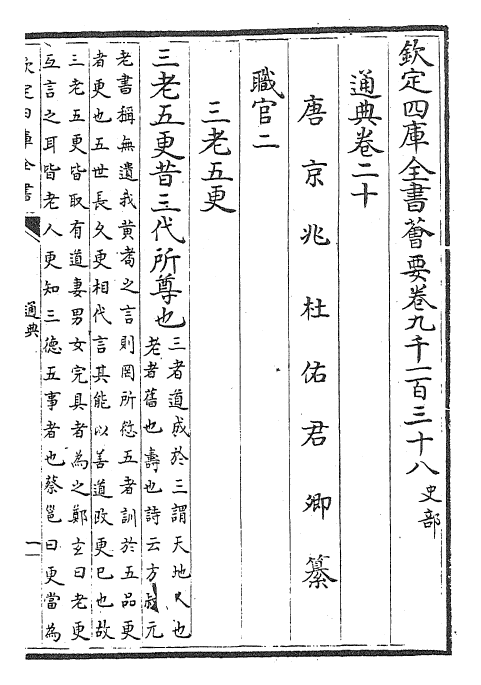 欽定四庫全書薈要卷九千一百三十八史部
通典卷二十
唐京兆杜佑君卿纂
職官二
三老五更
三老五更昔三代所尊也三者道成於三謂天地人也
老者舊也壽也詩云方叔元
老書稱無遺我黃耇之言則罔所愆五者訓於五品更
者更也五世長久更相代言其能以善道改更已也故
三老五更皆取有道妻男女完具者為之鄭玄曰老更
互言之耳皆老人更知三德五事者也蔡邕曰更當為
欽定四庫全書
通典
一